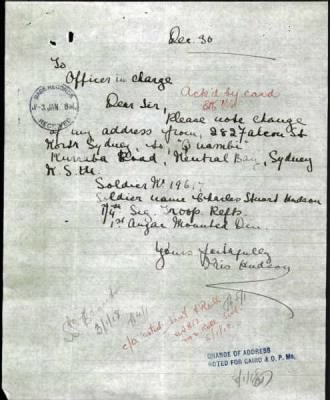 Dec. 30
To
Officer in charge
BASE RECORDS
-3 JAN
RECEIVED
Ack'd by card
Dear Sir,
Please note change
of my address from, 282 Falcon St
North Sydney, to,
Kurraba Road, Neutral Bay, Sydney
N.S.W.
Soldier No 196
Soldier name Charles Stuart Hudson
Sig. Troop Refts
1st Anzac Mounted Div.
Yours faithfully
Iris Hudson
3/1/18
CHANGE OF ADDRESS
NOTED FOR CAIRO & O. P. Ms.